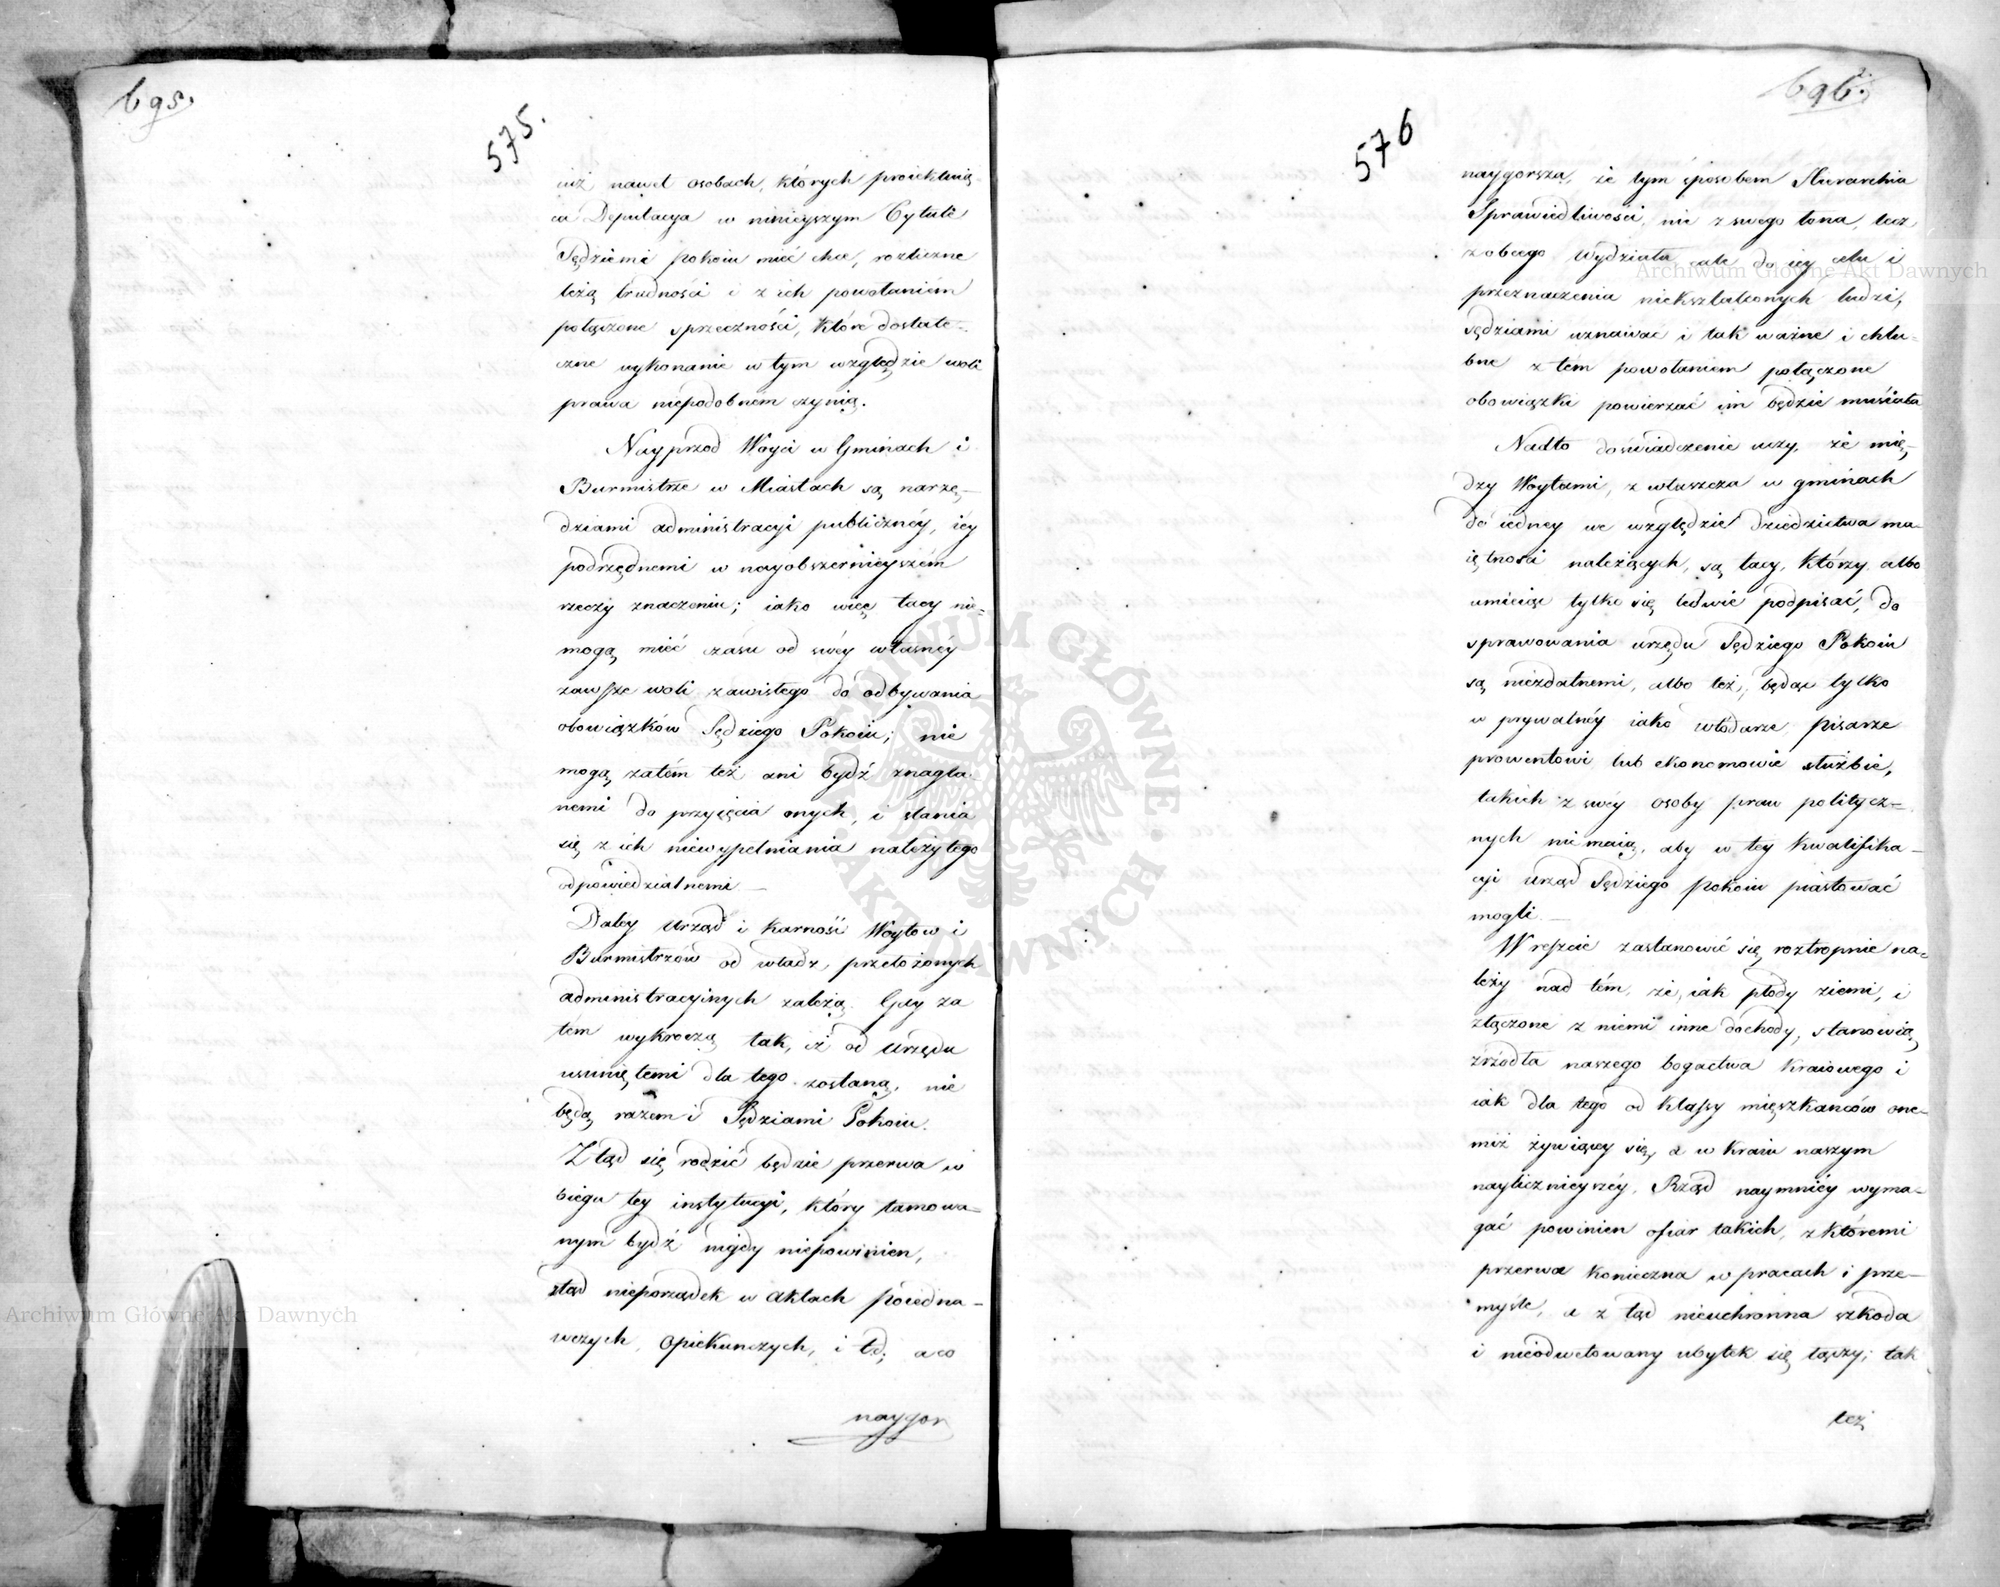 695.
575.
iuż nawet osobach, których proiektuią-
ca Deputacya w ninieyszym Tytule
Sędziemi pokoiu mieć chce, rozliczne
leżą trudności i z ich powołaniem
połączone sprzeczności, które dostate-
czne wykonanie w tym względzie woli
prawa niepodobném czynią.
Nayprzod Woyci w Gminach i
Burmistrze w Miastach są narzę-
dziami administracyi publicznéy, iéy
podrzędnemi w nayobszernieyszém
rzeczy znaczeniu; iako więc tacy nie-
mogą mieć czasu od swéy własnéy
zawsze woli zawisłego do odbywania
obowiązków Sędziego Pokoiu; nie
mogą zatém też ani bydź znagla-
nemi do przyięcia onych, i stania
się z ich niewypełniania należytego
odpowiedzialnemi —
Daley Urząd i karność Woytow i
Burmistrzów od władz, przełożonych
administracyinych zależą. Gdy za
tém wykroczą tak, iż od Urzędu
usuniętemi dla tego zostaną, nie
będą razem i Sędziami Pokoiu.
Ztąd się rodzić będzie przerwa w
biegu tey instytucyi, który tamowa-
nym bydź nigdy niepowinien,
ztąd nieporządek w aktach poiedna-
wczych, opiekunczych, i td; a co
naygor
696.
576
naygorszą, że tym sposobem Hierarchia
Sprawiedliwości, nie z swego łona, lecz
z obcego Wydziału cale do iey celu i
przeznaczenia niekształconych ludzi,
sędziami uznawać i tak ważne i chlu-
bne z tém powołaniem połączone
obowiązki powierzać im będzie musiała
Nadto doświadczenie uczy, że mię-
dzy Woytami, zwłaszcza w gminach
do iedney we względzie dziedzictwa ma-
iętności należących, są tacy, którzy albo
umieiąc tylko się ledwie podpisać, do
sprawowania urzędu Sędziego Pokoiu
są niezdatnemi, albo też, będąc tylko
w prywatnéy iako włodarze, pisarze
prowentowi lub ekonomowie służbie,
takich z swéy osoby praw politycz-
nych niemaią, aby w tey kwalifika-
cyi urząd Sędziego pokoiu piastować
mogli —
Wreszcie zastanowić się roztropnie na-
leży nad tém, że, iak płody ziemi, i
złączone z niemi inne dochody, stanowią
źrzódła naszego bogactwa kraiowego i
iak dla tego od klassy mięszkanców one-
miż żywiącey się, a w kraiu naszym
nayliczniéyszéy, Rząd naymniéy wyma-
gać powinien ofiar takich, z któremi
przerwa konieczna w pracach i prze-
myśle, a z tąd nieuchronna szkoda
i nieodwetowany ubytek się łączy; tak
też
Archiwum Główne Akt Dawnych
Archiwum Główne Akt Dawnych
ARCHIWUM GŁÓWNE AKT DAWNYCH